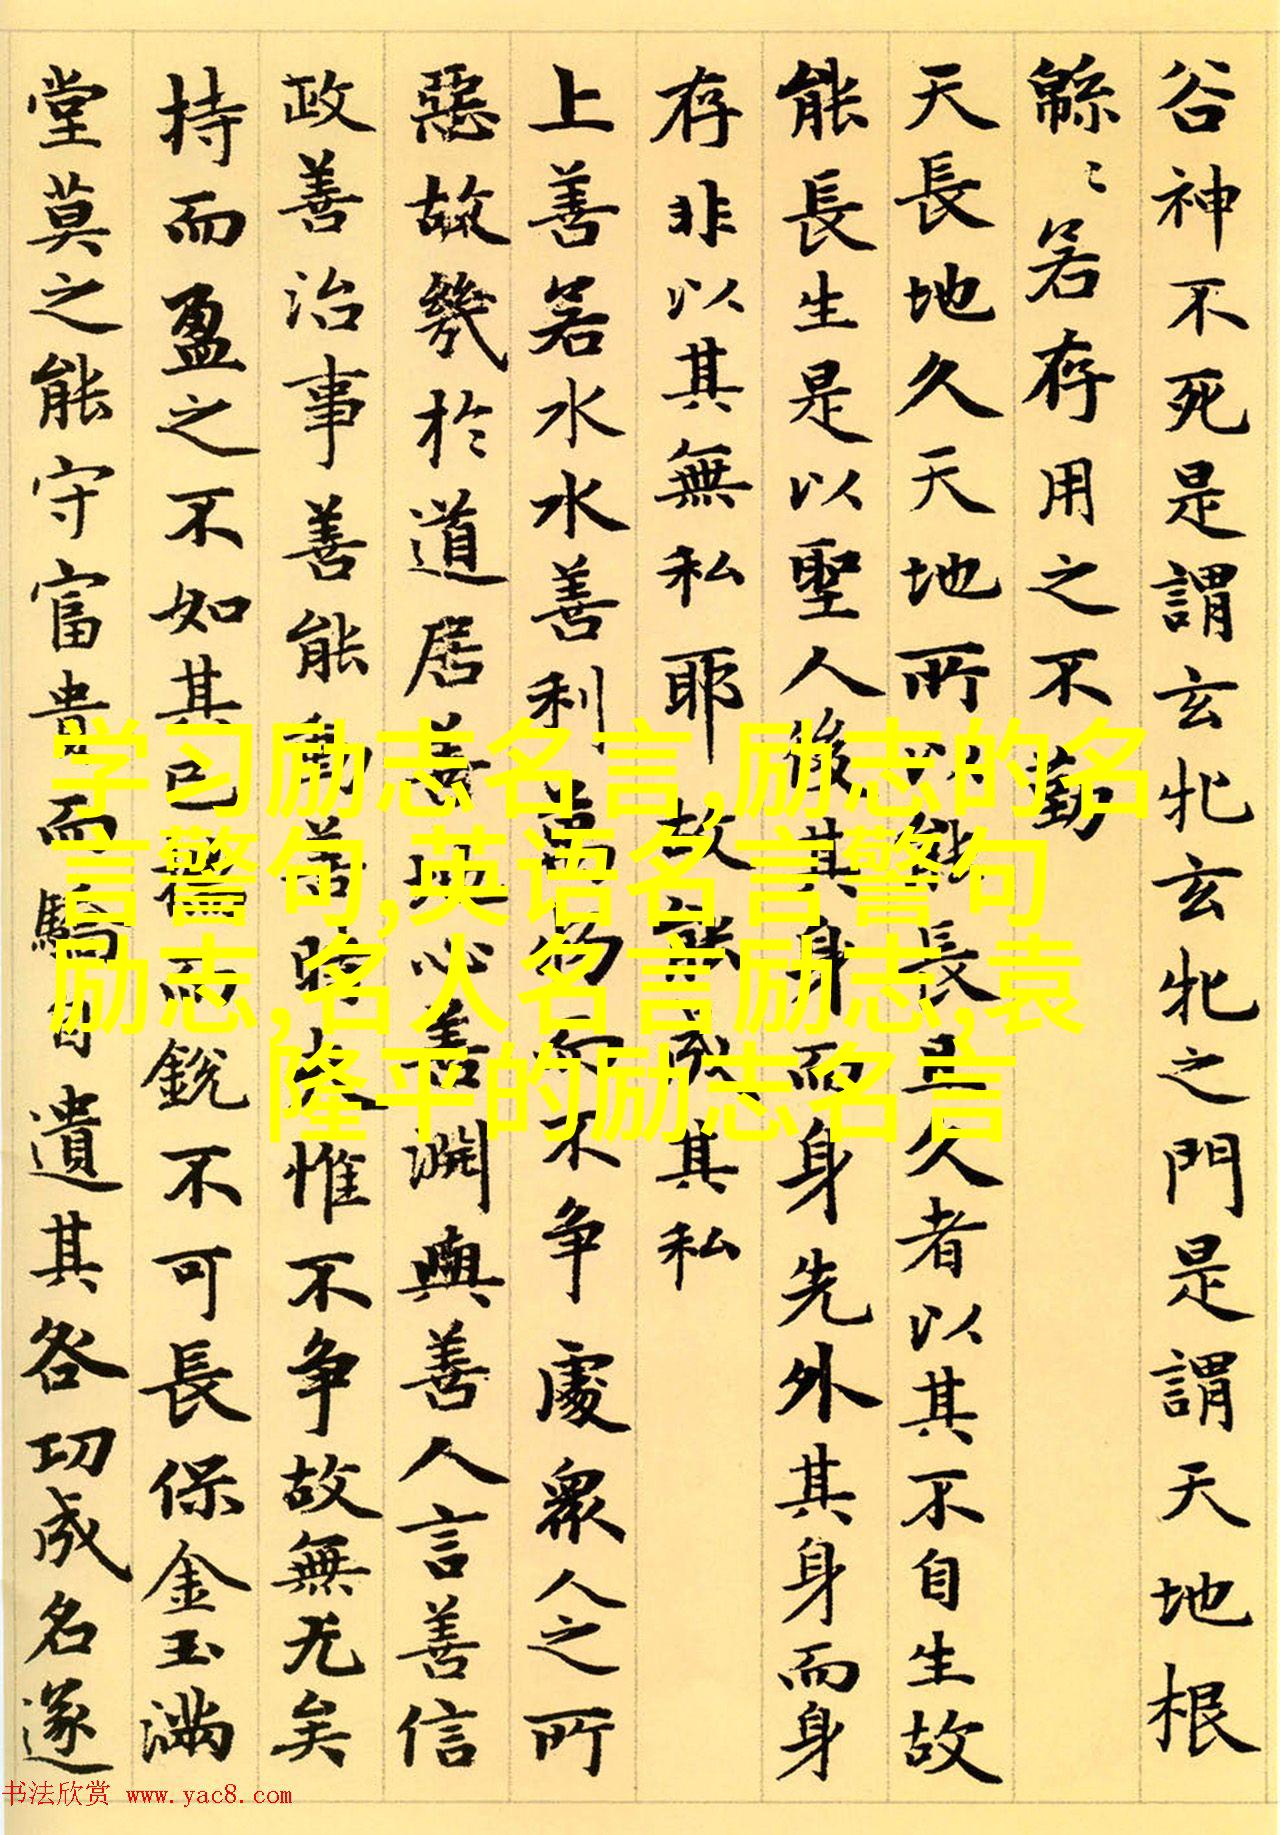 谷神不死是謂玄牝玄牝之門是謂天地根
緜〻若存用之不勤
天長地久天地所以能長且久者以其不自生故
能長生是以聖人後其身而身先外其身而身
存非以其無私耶故能成其私
上善若水水善利萬物而不争處衆人之所
惡故幾於道居善地心善渊與善人言善信
政善治事善能動善時夫惟不争故無尤矣
持而盈之不如其已揣而銳不可長保金玉滿
堂莫之能守富貴而驕自遺其咎功成名遂
学习励志名言,励志的名
言警句,英语名言警句
励志,名人名言励志,袁
隆平的励志名言
书法欣赏 www.yac8.com